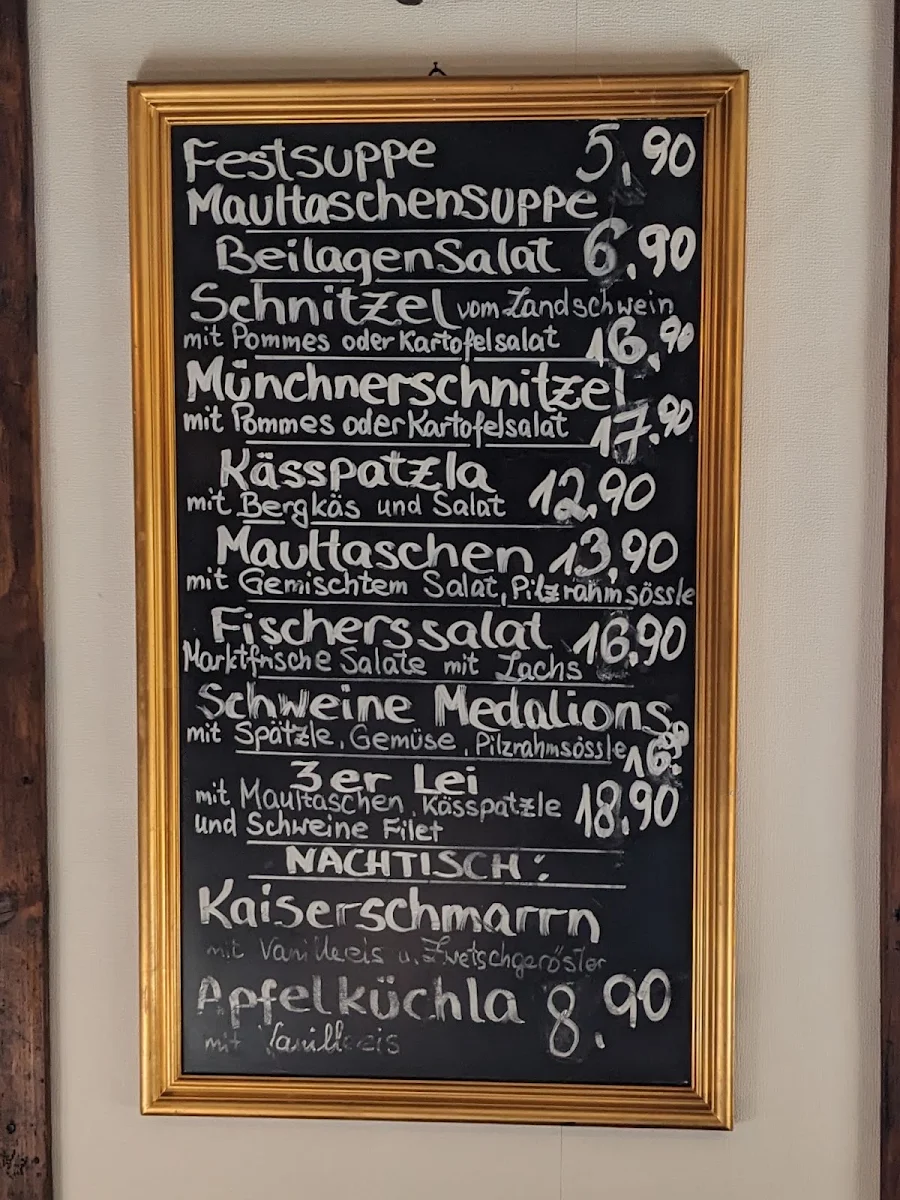 Festsuppe 5,90
Maultaschensuppe
Beilagensalat 6.90
Schnitzel vom Landschwein
mit Pommes oder Kartofelsalat 16,90
Münchnerschnitzel
mit Pommes oder Kartofelsalat 17.90
Kässpatzla 12,90
mit Bergkäs und Salat
Maultaschen 13,90
mit Gemischtem Salat, Pilzrahmsössle
Fischerssalat 16.90
Marktfrische Salate mit Lachs
Schweine Medalions
mit Spätzle, Gemüse, Pilzrahmsössle 16.90
3er Lei
mit Maultaschen, Kässpatzle 18.90
und Schweine Filet
NACHTISCH:
Kaiserschmarrn
mit Vanilleeis u. Zwetschgeröster
Apfelküchla 8.90
mit Vanilleeis